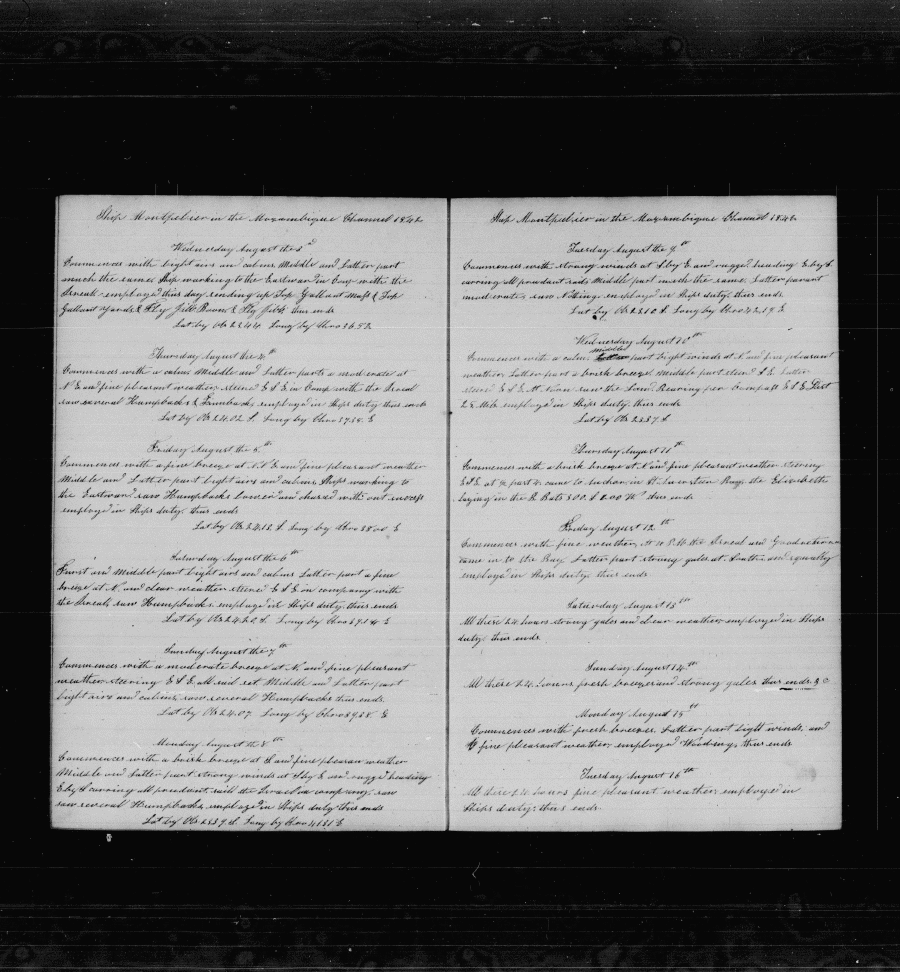 Ship Montpelier in the Mozambique Channel 1842
Wednesday August the 3d
Commences with light airs and calms Middle and Latter part
much the same, Ship working to the Eastward in Coy with the
employed this day sending up Top Gallant Mast & Top
Gallant Yards & Fly Jib Boom & Fly Jib thus ends
Lat by Ob 23.44 Long by Chro 36.52
Thursday August the 4th
Commences with a calm Middle and Latter parts a moderate at
N E and fine pleasant weather steered E S E in Comp with the
saw several Humpbacks & Finnbacks employed in Ships duty thus ends
Lat by Ob 24.02 S. Long by Chro 37.55 E
Friday August the 5th
Commences with a fine breeze at N E and fine pleasant weather
Middle and Latter part light airs and calms, Ships working to
the Eastward saw Humpbacks lowered and chased without success
employed in Ships duty thus ends
Lat by Ob 24.18 S. Long by Chro 38.00 E
Saturday August the 6th
First and Middle part light airs and calms Latter part a fine
breeze at N. and clear weather steered E S E in company with
the saw Humpbacks employed in Ships duty, thus ends
Lat by Ob 24.20 S. Long by Chro 39.14 E
Sunday August the 7th
Commences with a moderate breeze at N. and fine pleasant
weather steering E S E all sail set Middle and Latter part
light airs and calms, saw several Humpbacks thus ends.
Lat by Ob 24.07 Long by Chro 39.58 E
Monday August the 8th
Commences with a brisk breeze at S and fine pleasant weather
Middle and Latter part strong winds at S by E and rugged heading
E by S carrying all prudent sail the in company, saw
saw several Humpbacks, employed in Ships duty thus ends
Lat by Ob 23.39 S. Long by Chro 41.31 E
Ship Montpelier in the Mozambique Channel 1842
Tuesday August the 9th
Commences with strong winds at S by E and rugged heading E by S
carrying all prudent sails Middle part much the same, Latter part
moderate saw Nothing employed in Ships duty thus ends
Lat by Ob 23.10 S. Long by Chro 42.19 E
Wednesday August 10th
Commences with a calm, middle part Light winds at N and fine pleasant
weather, Latter part a brisk breeze, Middle part steered S E Latter
steered E S E at saw the Land Bearing per Compass E S E Dist
25 Mile employed in Ships duty thus ends
Lat by Ob 23.37 S.
Thursday August 11th
Commences with a brisk breeze at N and fine pleasant weather steering
E S E at came to Anchor in St Augustine Bay, the
laying in the Bay thus ends
Friday August 12th
Commences with fine weather, At 4 P.M. the and
came in to the Bay Latter part strong gales at South and squally
employed in Ships duty thus ends
Saturday August 13th
All these 24 hours strong gales and clear weather employed in Ships
duty thus ends
Sunday August 14th
All these 24 hours fresh breezes and strong gales thus ends & C
Monday August 15th
Commences with fresh breezes. Latter part light winds, and
fine pleasant weather employed Wooding, thus ends
Tuesday August 16th
All these 24 hours fine pleasant weather employed in
Ships duty, thus ends.